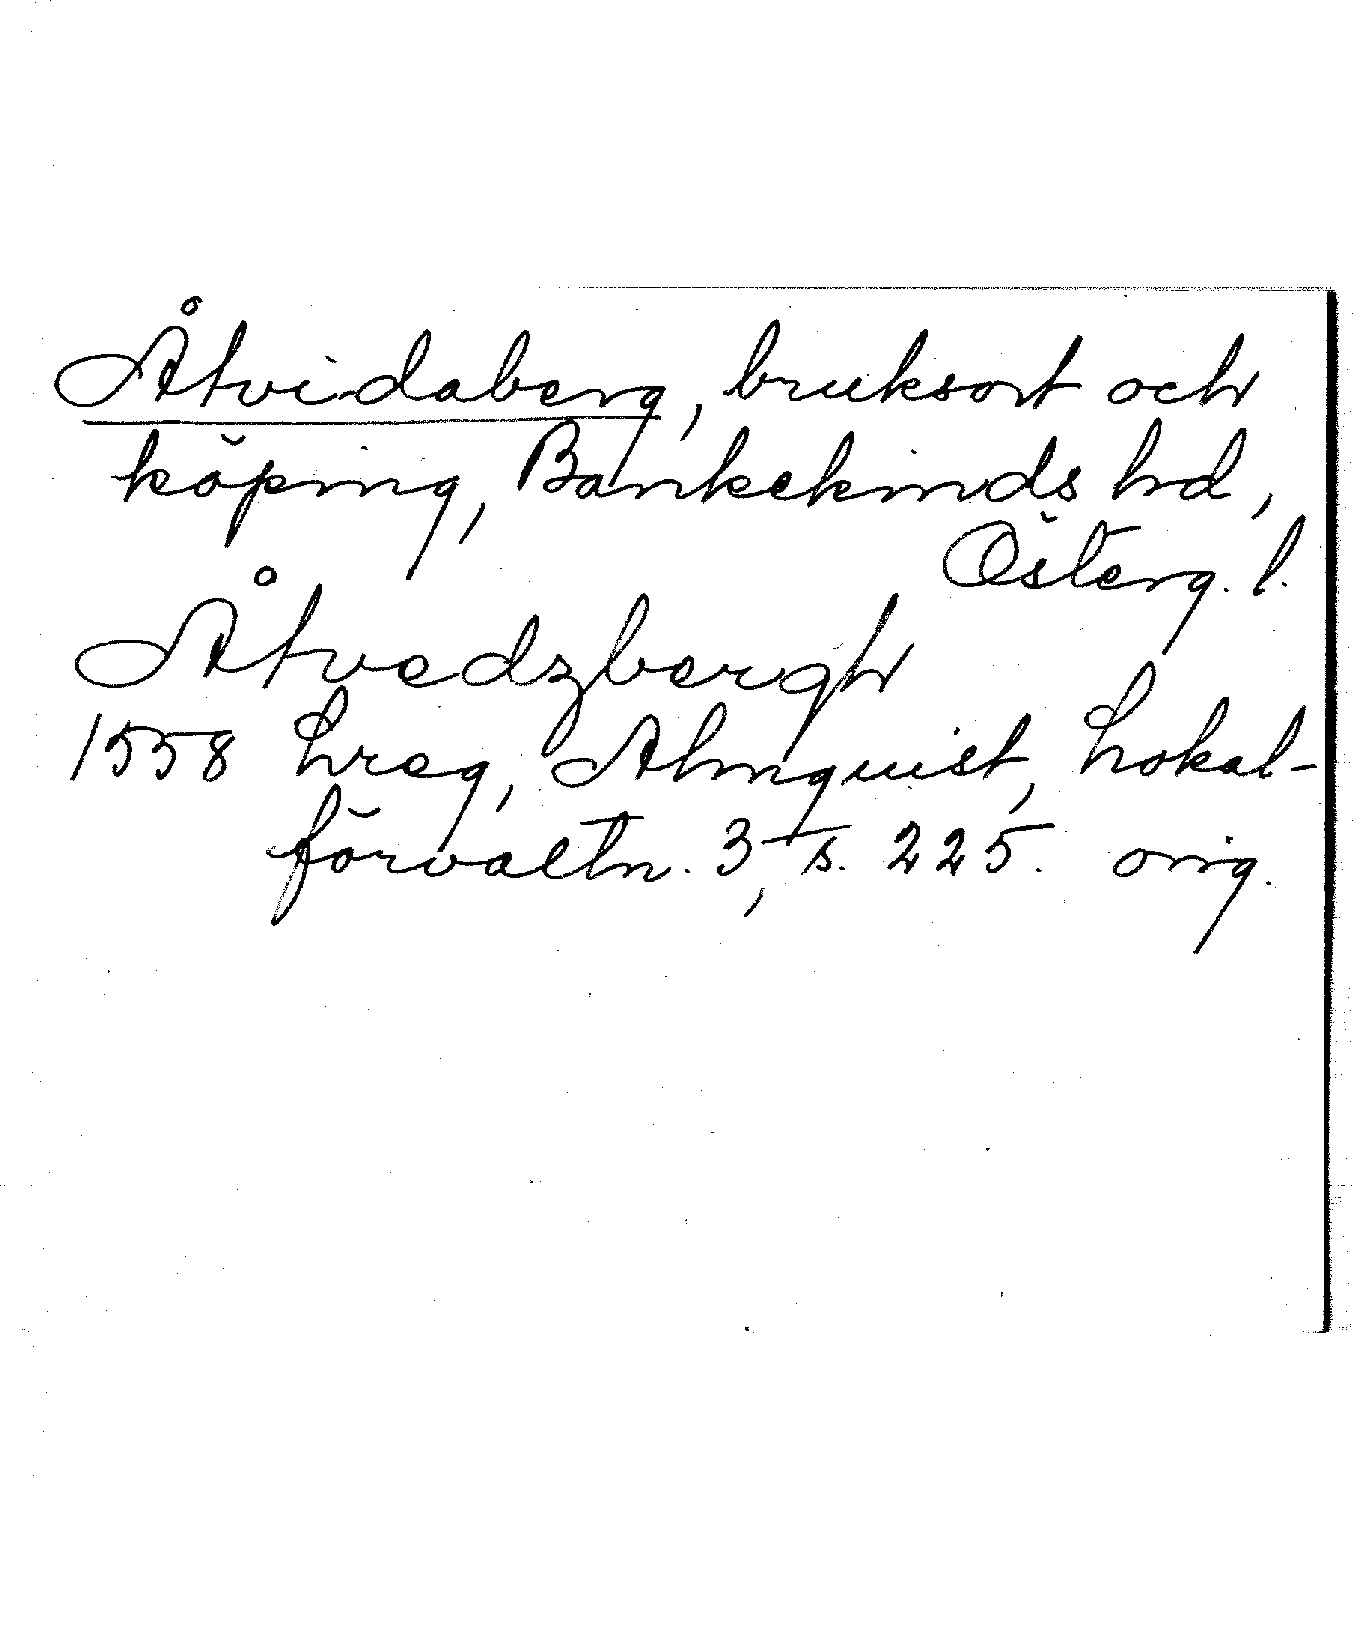 Åtvidaberg, bruksort och
köping, Bankekinds hd,
Österg. l.
Åtvedzbergh
1558 Lreg, Almquist, Lokal-
förvaltn. 3, s. 225. orig.